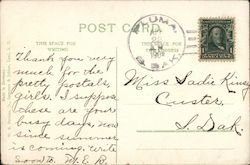 POST CARD
PLUMA
S. DAK.
THIS SPACE FOR
WRITING.
Thank you very
much for the
pretty postals,
girls. I suppose
these are your
busy days, now
since summer
is coming. Write
soon to M.E.R.
Miss Sadie King
Custer,
S. Dak.